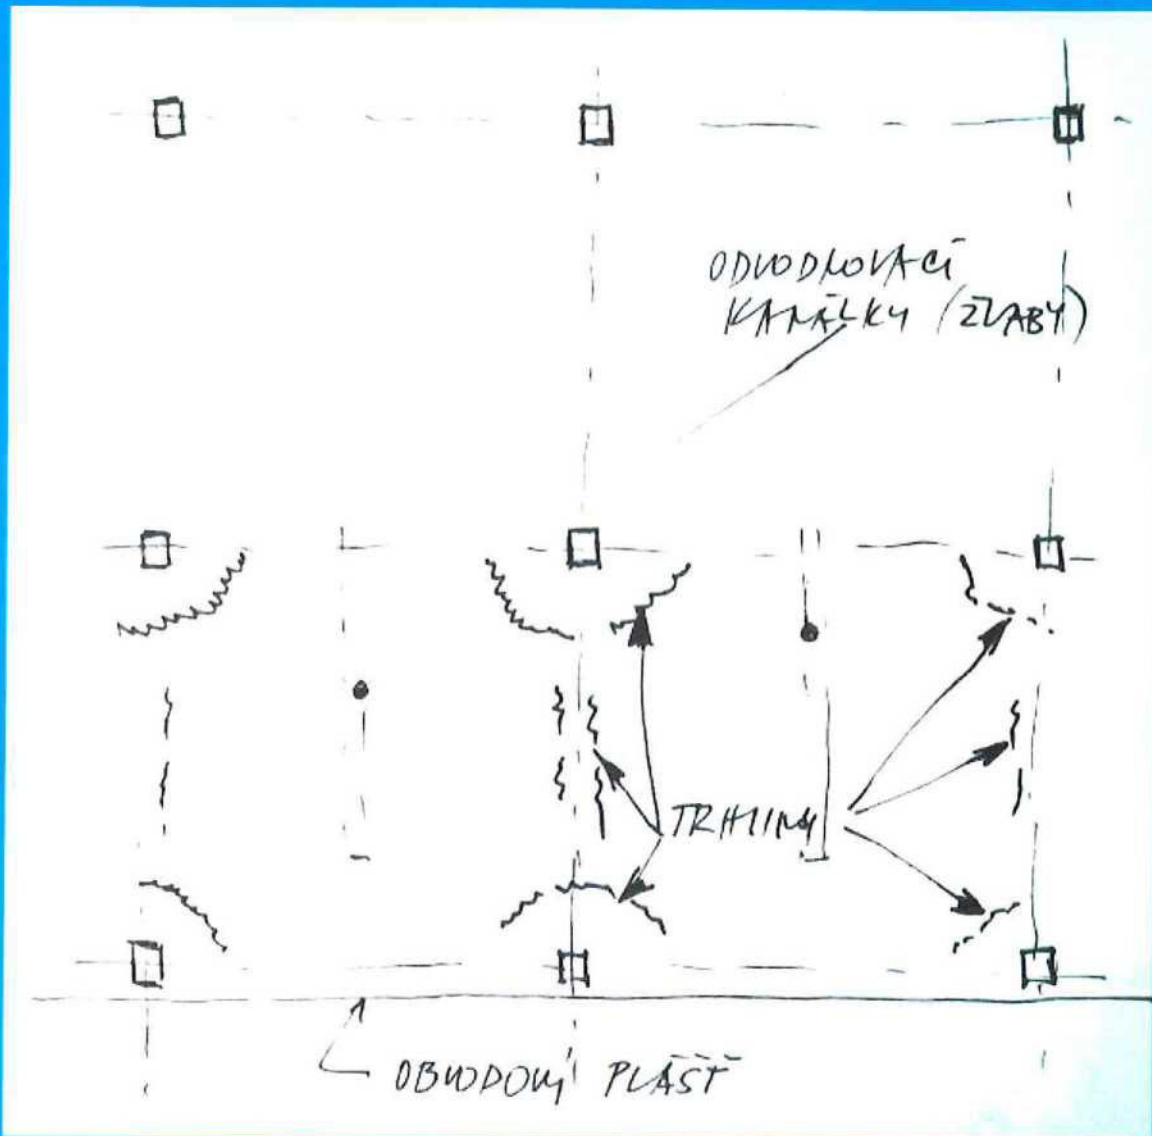 ODVODŇOVACÍ
KANÁLKY (ŽLABY)
TRHLINY
OBVODOVÝ PLÁŠŤ